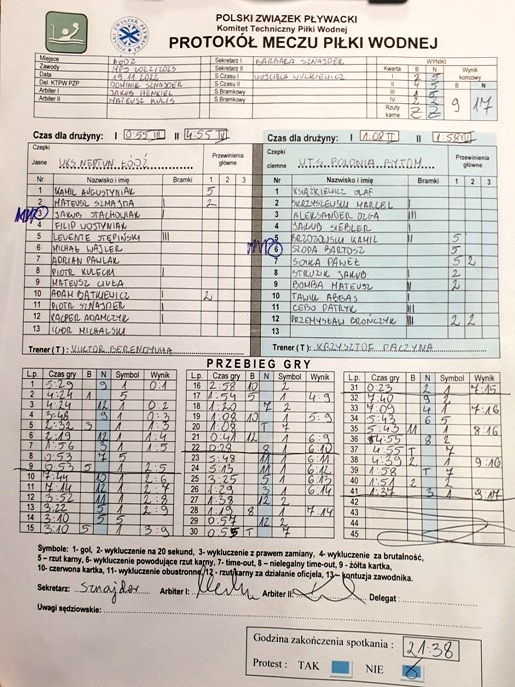 POLSKI ZWIĄZEK PŁYWACKI
Komitet Techniczny Piłki Wodnej
PROTOKÓŁ MECZU PIŁKI WODNEJ
Miejsce ŁÓDŹ Sekretarz I BARBARA SZNAJDER WYNIKI
Zawody MPS 2022/2023 Sekretarz II Kwarta B N Wynik końcowy
Data 19.11.2022 S.Czasu I WOJCIECH I 2 5
Del. KTPW PZP DOMINIK SZNAJDER S.Czasu II II
Arbiter I JAKUB S.Bramkowy III 1 5 9 17
Arbiter II MATEUSZ KULIS S.Bramkowy IV
Rzuty karne
Czas dla drużyny: I 0:55 III II 4:55 IV Czas dla drużyny: I 1:08 II II 1:58 IV
Czepki jasne UKS NEPTUN ŁÓDŹ Przewinienia główne
Czepki ciemne WTS POLONIA BYTOM Przewinienia główne
Nr Nazwisko i imię Bramki 1 2 3 Nr Nazwisko i imię Bramki 1 2 3
1 KAMIL AUGUSTYNIAK 5 1 KSIĄŻKIEWICZ OLAF
2 MATEUSZ SZMAJDA I 2 2 SKRZYSZEWSKI MARCEL I
MVP 3 JAKUB STACHOWIAK I 3 ALEKSANDER OZGA III
4 FILIP WOJTYNIAK 4 JAKUB SIEBLER
5 LEVENTE STĘPIŃSKI III 5 BRZOZOWSKI KAMIL II 5
6 MICHAŁ WAJLER MVP 6 SŁODA BARTOSZ 5
7 ADRIAN PAWLAK 7 SOJKA PAWEŁ 5 2
8 PIOTR KULECKI I 8 STRUZIK JAKUB I 2
9 MATEUSZ 9 BOMBA MATEUSZ 2
10 ADAM BĄTKIEWICZ I 2 10 ABBAS
11 PIOTR SZNAJDER II 11 CEBO PATRYK
12 KACPER ADAMCZYK 12 PRZEMYSŁAW GROŃCZYK 2 2
13 IGOR MICHALSKI 13
Trener ( T ) : WIKTOR BERENDYUHA Trener ( T ) : KRZYSZTOF PACZYNA
PRZEBIEG GRY
L.p. Czas gry B N Symbol Wynik L.p. Czas gry B N Symbol Wynik L.p. Czas gry B N Symbol Wynik
1 5:29 9 1 0:1 16 2:58 10 2 31 0:23 2 1 7:15
2 4:24 1 5 17 1:54 5 1 4:9 32 7:40 9 2
3 4:24 12 1 0:2 18 1:20 7 2 33 7:09 4 1 7:16
4 3:46 9 1 0:3 19 1:09 10 1 5:9 34 5:43 6 5
5 2:32 3 1 1:3 20 1:08 T 7 35 5:43 11 1 8:16
6 2:19 12 1 1:4 21 0:41 12 1 6:9 36 4:55 8 2
7 1:56 3 1 1:5 22 0:28 8 1 6:10 37 4:55 T 7
8 0:53 7 5 23 5:48 11 1 6:11 38 4:39 2 1 9:16
9 0:53 5 1 2:5 24 5:13 11 1 6:12 39 1:58 T 7
10 7:44 10 1 2:6 25 3:25 5 1 6:13 40 1:51 2 2
11 7:14 11 1 2:7 26 1:29 3 1 6:14 41 1:37 3 1 9:17
12 3:52 11 1 2:8 27 1:38 12 2 42
13 3:22 5 1 2:9 28 1:19 8 1 7:14 43
14 3:10 5 5 29 0:57 12 2 44
15 3:10 5 1 3:9 30 0:55 T 7 45
Symbole: 1- gol, 2- wykluczenie na 20 sekund, 3- wykluczenie z prawem zamiany, 4- wykluczenie za brutalność,
5 – rzut karny, 6- wykluczenie powodujące rzut karny, 7- time-out, 8 – nielegalny time-out, 9 - żółta kartka,
10- czerwona kartka, 11- wykluczenie obustronne, 12- rzut karny za działanie oficjela, 13– kontuzja zawodnika.
Sekretarz: Sznajder Arbiter I: Arbiter II: Delegat :
Uwagi sędziowskie:
Godzina zakończenia spotkania : 21:38
Protest : TAK NIE